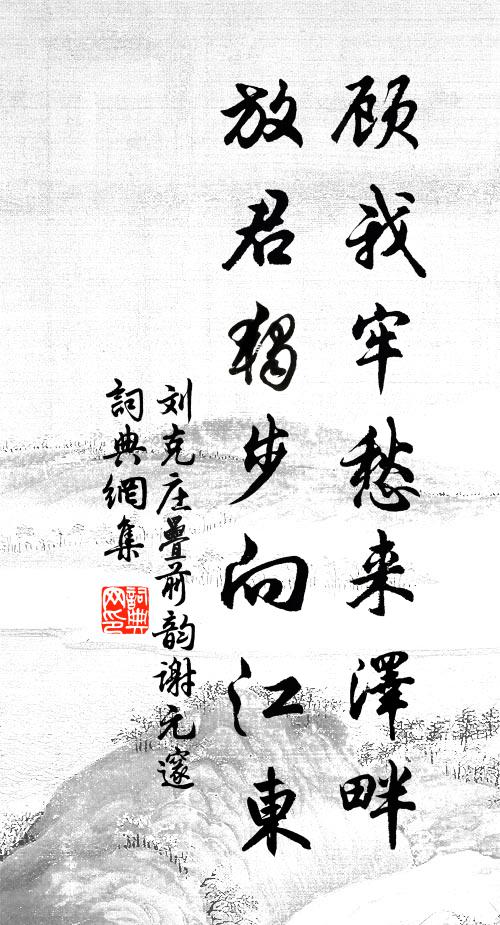 顾我牢愁来澤畔
放君獨步向江東
刘克庄疊前韵谢元邃
詞典網集
詞典网印